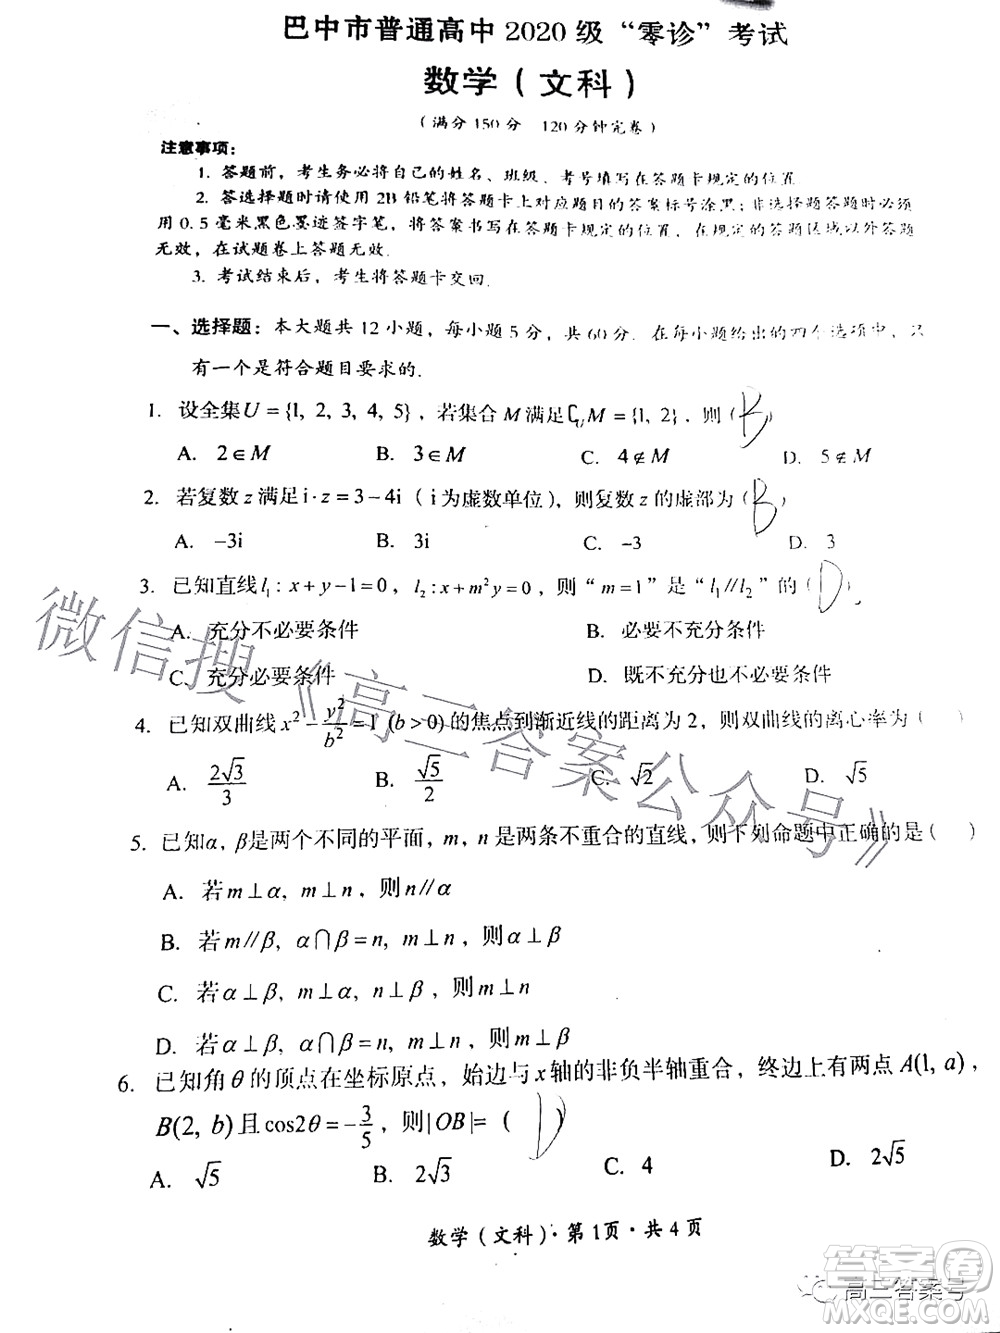 巴中市普通高中2020级“零诊”考试
数学(文科)
(满分150分 120分钟完卷)
注意事项:
1. 答题前,考生务必将自己的姓名、班级、考号填写在答题卡规定的位置
2. 答选择题时请使用2B铅笔将答题卡上对应题目的答案标号涂黑;非选择题答题必须
用0.5毫米黑色墨迹签字笔,将答案书写在答题卡规定的位置,在规定的答题区域以外答题
无效,在试题卷上答题无效.
3. 考试结束后,考生将答题卡交回.
一、选择题:本大题共12小题,每小题5分,共60分.在每小题给出的四个选项中,只
有一个是符合题目要求的.
1. 设全集U={1, 2, 3, 4, 5},若集合M满足∁UM={1, 2},则( B )
A. 2∈M B. 3∈M C. 4∉M D. 5∉M
2. 若复数z满足i·z=3−4i(i为虚数单位),则复数z的虚部为( B )
A. −3i B. 3i C. −3 D. 3
3. 已知直线l₁:x+y−1=0,l₂:x+m²y=0,则“m=1”是“l₁//l₂”的( D )
A. 充分不必要条件 B. 必要不充分条件
C. 充分必要条件 D. 既不充分也不必要条件
4. 已知双曲线x²−y²/b²=1 (b>0)的焦点到渐近线的距离为2,则双曲线的离心率为( )
A. 2√3/3 B. √5/2 C. √2 D. √5
5. 已知α, β是两个不同的平面,m, n是两条不重合的直线,则下列命题中正确的是( )
A. 若m⊥α, m⊥n,则n//α
B. 若m//β, α∩β=n, m⊥n,则α⊥β
C. 若α⊥β, m⊥α, n⊥β,则m⊥n
D. 若α⊥β, α∩β=n, m⊥n,则m⊥β
6. 已知角θ的顶点在坐标原点,始边与x轴的非负半轴重合,终边上有两点A(1, a),
B(2, b)且cos2θ=−3/5,则|OB|=( D )
A. √5 B. 2√3 C. 4 D. 2√5
数学(文科)·第1页·共4页
微信搜《高三答案公众号》
高三答案号
答案圈
MXQE.COM